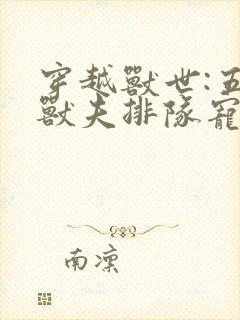 穿越獸世:五
獸夫排隊寵
南凜